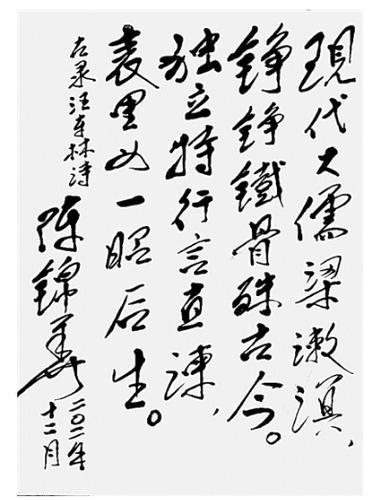 現代大儒梁漱溟，
铮铮鐵骨殊古今。
独立特行言直谏，
表里如一昭后生。
右录汪东林诗
陈锦华
二〇一一年
十二月